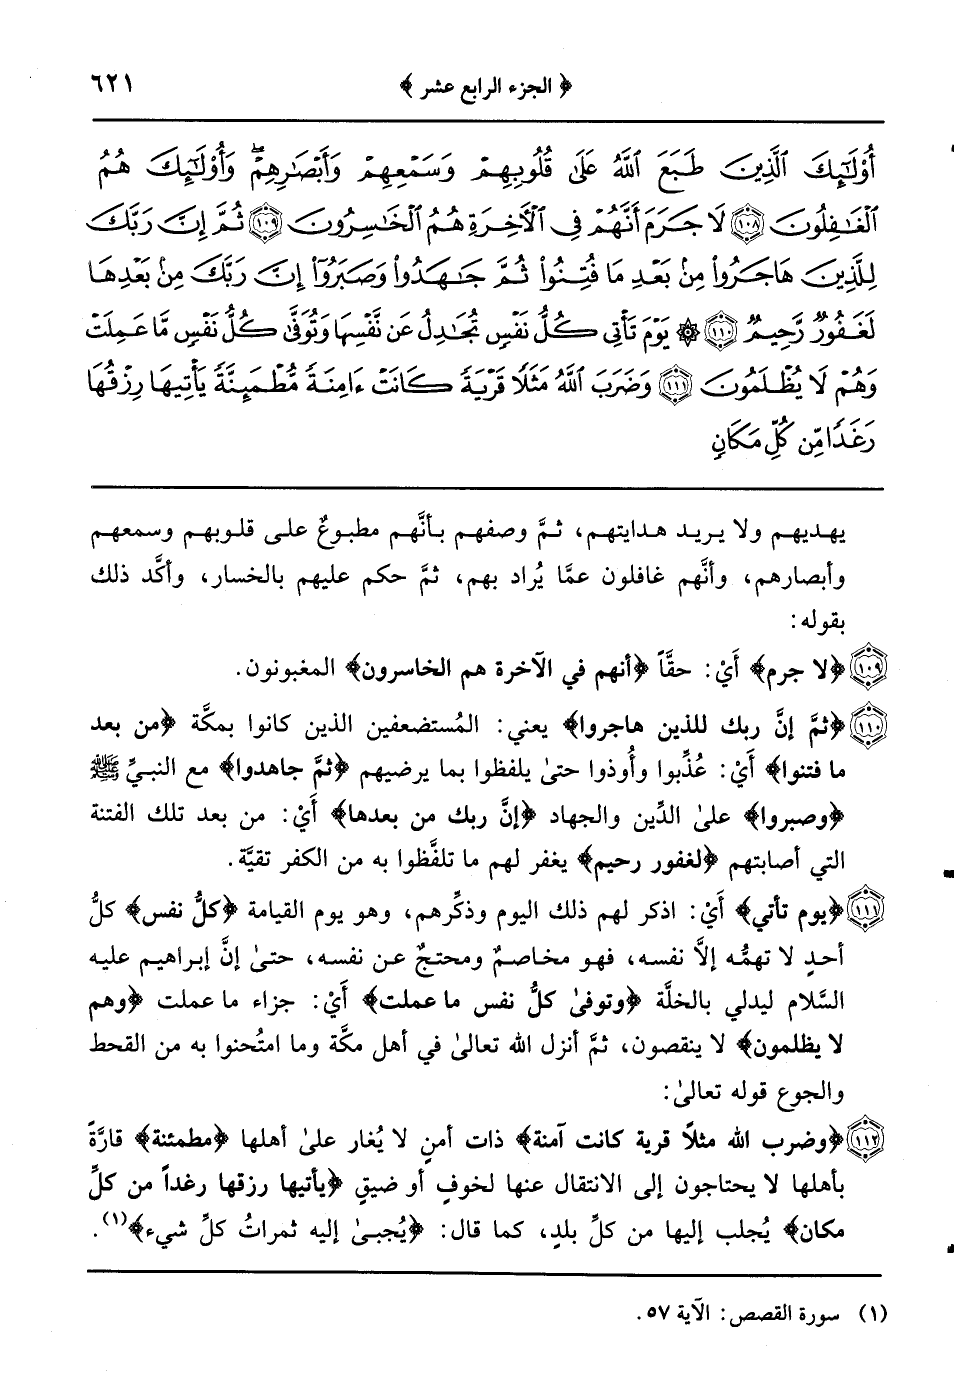 ﴿ الجزء الرابع عشر ﴾ ٦٢١
أُوْلَٰٓئِكَ ٱلَّذِينَ طَبَعَ ٱللَّهُ عَلَىٰ قُلُوبِهِمْ وَسَمْعِهِمْ وَأَبْصَٰرِهِمْ ۖ وَأُوْلَٰٓئِكَ هُمُ
ٱلْغَٰفِلُونَ ١٠٨ لَا جَرَمَ أَنَّهُمْ فِى ٱلْءَاخِرَةِ هُمُ ٱلْخَٰسِرُونَ ١٠٩ ثُمَّ إِنَّ رَبَّكَ
لِلَّذِينَ هَاجَرُواْ مِنۢ بَعْدِ مَا فُتِنُواْ ثُمَّ جَٰهَدُواْ وَصَبَرُوٓاْ إِنَّ رَبَّكَ مِنۢ بَعْدِهَا
لَغَفُورٌ رَّحِيمٌ ١١٠ ۞ يَوْمَ تَأْتِى كُلُّ نَفْسٍ تُجَٰدِلُ عَن نَّفْسِهَا وَتُوَفَّىٰ كُلُّ نَفْسٍ مَّا عَمِلَتْ
وَهُمْ لَا يُظْلَمُونَ ١١١ وَضَرَبَ ٱللَّهُ مَثَلًا قَرْيَةً كَانَتْ ءَامِنَةً مُّطْمَئِنَّةً يَأْتِيهَا رِزْقُهَا
رَغَدًا مِّن كُلِّ مَكَانٍ
يهديهم ولا يريد هدايتهم، ثمَّ وصفهم بأنَّهم مطبوعٌ على قلوبهم وسمعهم
وأبصارهم، وأنَّهم غافلون عمَّا يُراد بهم، ثمَّ حكم عليهم بالخسار، وأكَّد ذلك
بقوله:
١٠٩ ﴿لا جرم﴾ أَيْ: حقَّاً ﴿أنهم في الآخرة هم الخاسرون﴾ المغبونون.
١١٠ ﴿ثمَّ إنَّ ربك للذين هاجروا﴾ يعني: المُستضعفين الذين كانوا بمكَّة ﴿من بعد
ما فتنوا﴾ أَيْ: عُذِّبوا وأُوذوا حتىٰ يلفظوا بما يرضيهم ﴿ثمَّ جاهدوا﴾ مع النبيِّ ﷺ
﴿وصبروا﴾ علىٰ الدِّين والجهاد ﴿إنَّ ربك من بعدها﴾ أَيْ: من بعد تلك الفتنة
التي أصابتهم ﴿لغفور رحيم﴾ يغفر لهم ما تلفَّظوا به من الكفر تقيَّة.
١١١ ﴿يوم تأتي﴾ أَيْ: اذكر لهم ذلك اليوم وذكِّرهم، وهو يوم القيامة ﴿كلُّ نفس﴾ كلُّ
أحدٍ لا تهمُّه إلاَّ نفسه، فهو مخاصمٌ ومحتجٌ عن نفسه، حتىٰ إنَّ إبراهيم عليه
السَّلام ليدلي بالخلَّة ﴿وتوفىٰ كلُّ نفس ما عملت﴾ أَيْ: جزاء ما عملت ﴿وهم
لا يظلمون﴾ لا ينقصون، ثمَّ أنزل الله تعالىٰ في أهل مكَّة وما امتُحنوا به من القحط
والجوع قوله تعالىٰ:
١١٢ ﴿وضرب الله مثلاً قرية كانت آمنة﴾ ذات أمنٍ لا يُغار علىٰ أهلها ﴿مطمئنة﴾ قارَّةً
بأهلها لا يحتاجون إلى الانتقال عنها لخوفٍ أو ضيقٍ ﴿يأتيها رزقها رغداً من كلِّ
مكان﴾ يُجلب إليها من كلِّ بلدٍ، كما قال: ﴿يُجبىٰ إليه ثمراتُ كلِّ شيء﴾(١).
(١) سورة القصص: الآية ٥٧.